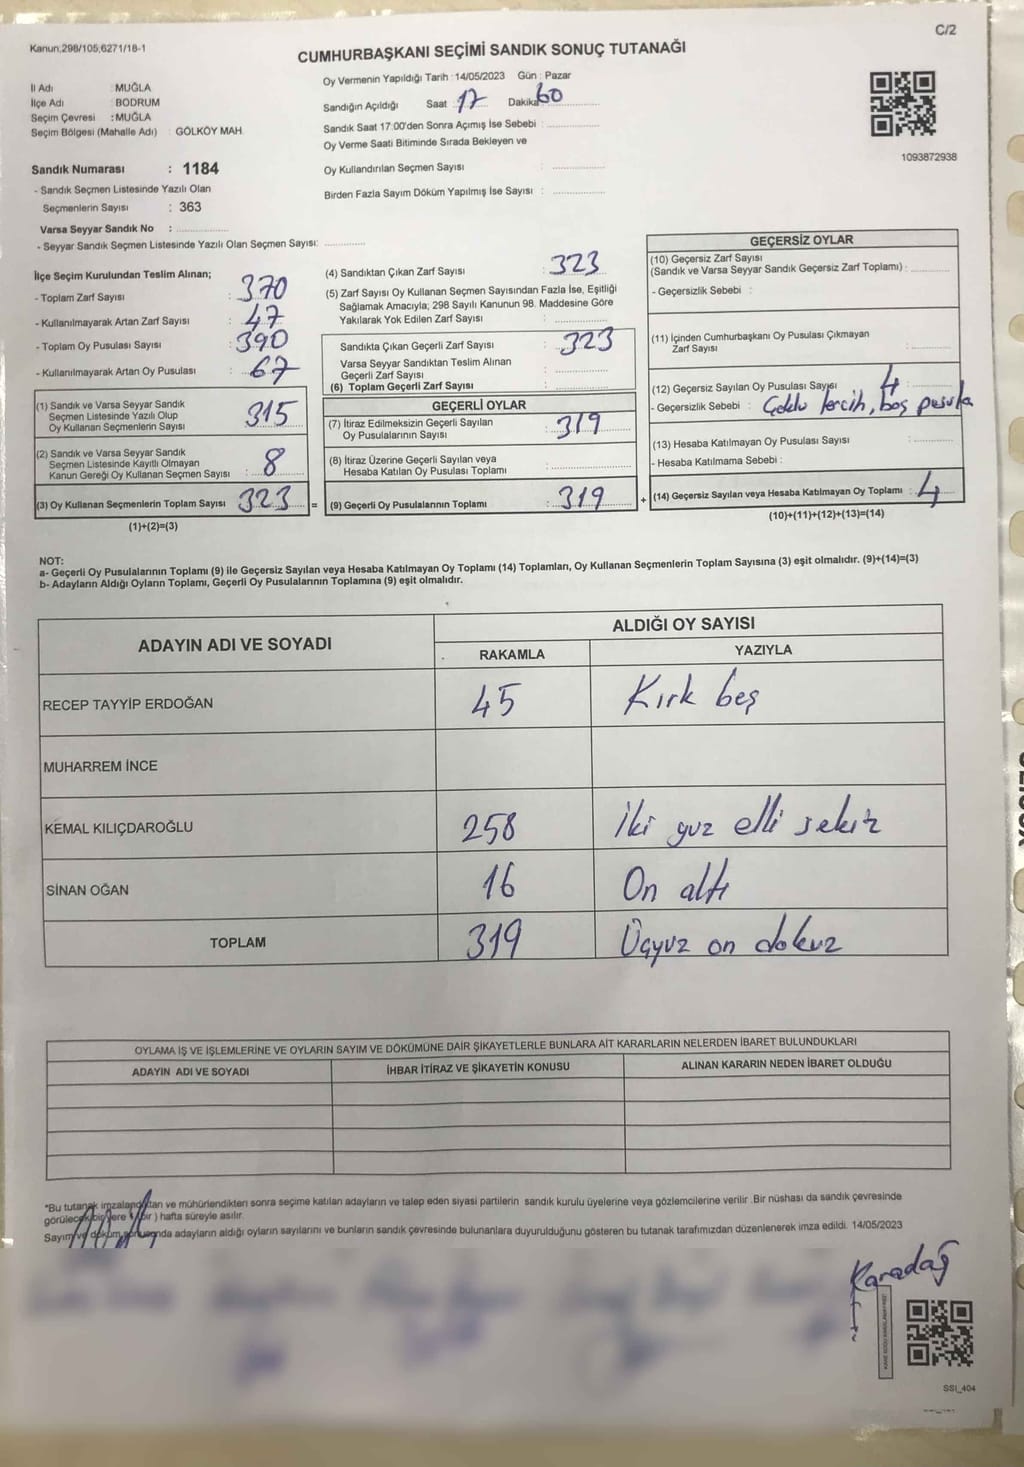 C/2
Kanun;298/105;6271/18-1
CUMHURBAŞKANI SEÇİMİ SANDIK SONUÇ TUTANAĞI
İl Adı : MUĞLA
İlçe Adı : BODRUM
Seçim Çevresi : MUĞLA
Seçim Bölgesi (Mahalle Adı) : GÖLKÖY MAH.
Sandık Numarası : 1184
- Sandık Seçmen Listesinde Yazılı Olan
Seçmenlerin Sayısı : 363
Varsa Seyyar Sandık No :
- Seyyar Sandık Seçmen Listesinde Yazılı Olan Seçmen Sayısı:
Oy Vermenin Yapıldığı Tarih : 14/05/2023 Gün : Pazar
Sandığın Açıldığı Saat : 17 Dakika: 60
Sandık Saat 17:00'den Sonra Açımış İse Sebebi :
Oy Verme Saati Bitiminde Sırada Bekleyen ve
Oy Kullandırılan Seçmen Sayısı :
Birden Fazla Sayım Döküm Yapılmış İse Sayısı :
1093872938
İlçe Seçim Kurulundan Teslim Alınan;
- Toplam Zarf Sayısı : 370
- Kullanılmayarak Artan Zarf Sayısı : 47
- Toplam Oy Pusulası Sayısı : 390
- Kullanılmayarak Artan Oy Pusulası : 67
(1) Sandık ve Varsa Seyyar Sandık
Seçmen Listesinde Yazılı Olup
Oy Kullanan Seçmenlerin Sayısı : 315
(2) Sandık ve Varsa Seyyar Sandık
Seçmen Listesinde Kayıtlı Olmayan
Kanun Gereği Oy Kullanan Seçmen Sayısı : 8
(3) Oy Kullanan Seçmenlerin Toplam Sayısı : 323 =
(1)+(2)=(3)
(4) Sandıktan Çıkan Zarf Sayısı : 323
(5) Zarf Sayısı Oy Kullanan Seçmen Sayısından Fazla İse, Eşitliği
Sağlamak Amacıyla; 298 Sayılı Kanunun 98. Maddesine Göre
Yakılarak Yok Edilen Zarf Sayısı :
Sandıkta Çıkan Geçerli Zarf Sayısı : 323
Varsa Seyyar Sandıktan Teslim Alınan
Geçerli Zarf Sayısı :
(6) Toplam Geçerli Zarf Sayısı :
GEÇERLİ OYLAR
(7) İtiraz Edilmeksizin Geçerli Sayılan
Oy Pusulalarının Sayısı : 319
(8) İtiraz Üzerine Geçerli Sayılan veya
Hesaba Katılan Oy Pusulası Toplamı :
(9) Geçerli Oy Pusulalarının Toplamı : 319 +
GEÇERSİZ OYLAR
(10) Geçersiz Zarf Sayısı
(Sandık ve Varsa Seyyar Sandık Geçersiz Zarf Toplamı) :
- Geçersizlik Sebebi :
(11) İçinden Cumhurbaşkanı Oy Pusulası Çıkmayan
Zarf Sayısı :
(12) Geçersiz Sayılan Oy Pusulası Sayısı : 4
- Geçersizlik Sebebi : Çoklu tercih, boş pusula
(13) Hesaba Katılmayan Oy Pusulası Sayısı :
- Hesaba Katılmama Sebebi :
(14) Geçersiz Sayılan veya Hesaba Katılmayan Oy Toplamı : 4
(10)+(11)+(12)+(13)=(14)
NOT:
a- Geçerli Oy Pusulalarının Toplamı (9) ile Geçersiz Sayılan veya Hesaba Katılmayan Oy Toplamı (14) Toplamları, Oy Kullanan Seçmenlerin Toplam Sayısına (3) eşit olmalıdır. (9)+(14)=(3)
b- Adayların Aldığı Oyların Toplamı, Geçerli Oy Pusulalarının Toplamına (9) eşit olmalıdır.
ADAYIN ADI VE SOYADI
ALDIĞI OY SAYISI
RAKAMLA YAZIYLA
RECEP TAYYİP ERDOĞAN 45 Kırk beş
MUHARREM İNCE
KEMAL KILIÇDAROĞLU 258 İki yuz elli sekiz
SİNAN OĞAN 16 On altı
TOPLAM 319 Üçyuz on dokuz
OYLAMA İŞ VE İŞLEMLERİNE VE OYLARIN SAYIM VE DÖKÜMÜNE DAİR ŞİKAYETLERLE BUNLARA AİT KARARLARIN NELERDEN İBARET BULUNDUKLARI
ADAYIN ADI VE SOYADI İHBAR İTİRAZ VE ŞİKAYETİN KONUSU ALINAN KARARIN NEDEN İBARET OLDUĞU
*Bu tutanak imzalandıktan ve mühürlendikten sonra seçime katılan adayların ve talep eden siyasi partilerin sandık kurulu üyelerine veya gözlemcilerine verilir .Bir nüshası da sandık çevresinde
görülecek bir yere 1(bir ) hafta süreyle asılır.
Sayım ve döküm sonucunda adayların aldığı oyların sayılarını ve bunların sandık çevresinde bulunanlara duyurulduğunu gösteren bu tutanak tarafımızdan düzenlenerek imza edildi. 14/05/2023
Karadağ
SSI_404